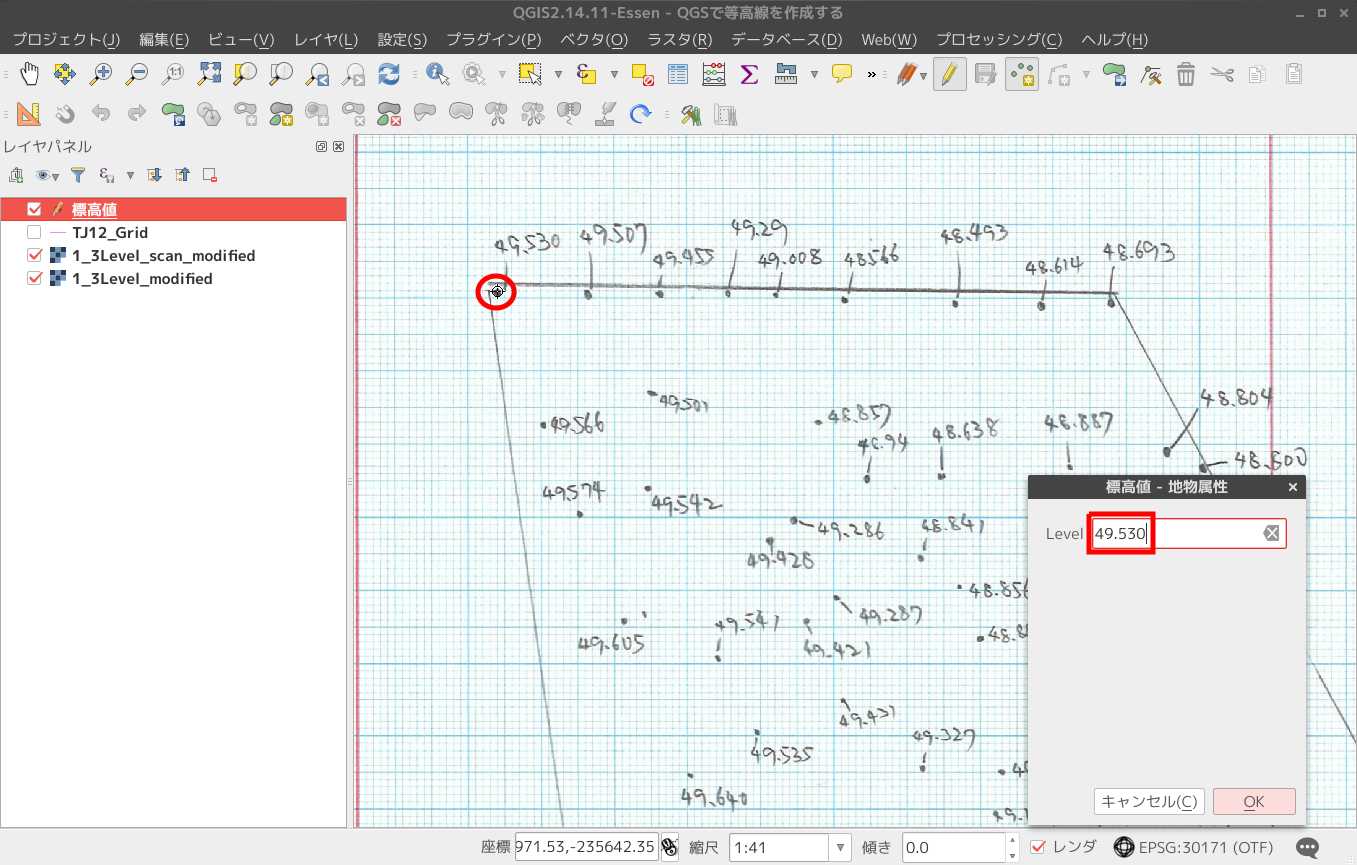 QGIS2.14.11-Essen - QGSで等高線を作成する
プロジェクト(J) 編集(E) ビュー(V) レイヤ(L) 設定(S) プラグイン(P) ベクタ(O) ラスタ(R) データベース(D) Web(W) プロセッシング(C) ヘルプ(H)
レイヤパネル
標高値
TJ12_Grid
1_3Level_scan_modified
1_3Level_modified
49.530 49.507 49.455 49.29 49.008 48.566 48.493 48.614 48.693
49.501
49.566
48.857
48.638
48.887
48.804
48.600
49.574
49.542
49.286
48.841
49.426
49.287
49.541
49.605
49.421
49.431
49.327
49.535
49.640
標高値 - 地物属性
Level 49.530
キャンセル(C) OK
座標 971.53,-235642.35 縮尺 1:41 傾き 0.0 レンダ EPSG:30171 (OTF)